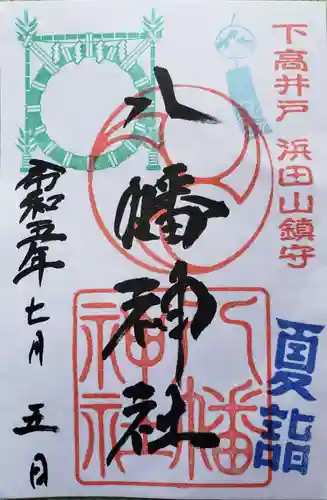 下高井戸 浜田山鎮守
夏詣
八幡神社
八幡
神社
令和五年
七月
五日